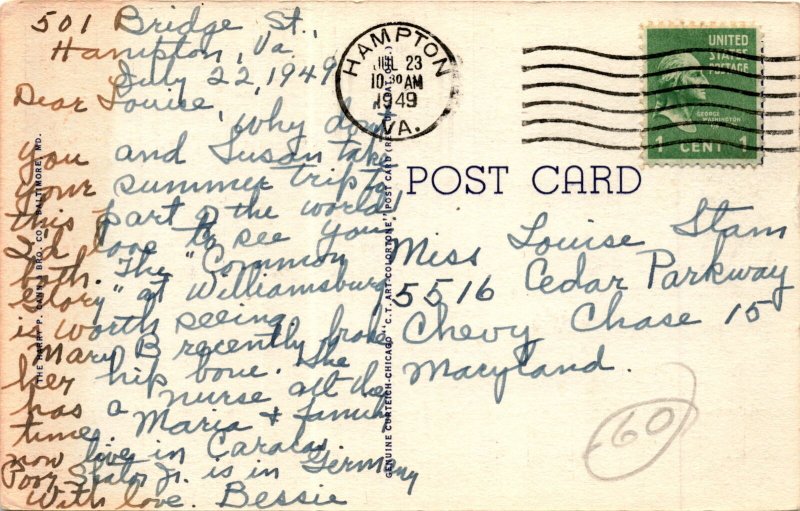 501 Bridge St.,
Hampton, Va.
July 22, 1949
Dear Louise,
Why don't
you and Susan take
your summer trip to
this part o the world!
I'd love to see you
both. The "Common
Glory" at Williamsburg
is worth seeing.
Mary B recently broke
her hip bone. She
has a nurse all the
time. Maria & family
now live in Caracas.
Jr. is in Germany
With love. Bessie
HAMPTON
JUL 23
10 30 AM
1949
VA.
UNITED
STATES
POSTAGE
GEORGE
WASHINGTON
1 CENT 1
POST CARD
Miss Louise Stam
5516 Cedar Parkway
Chevy Chase 15
Maryland.
60
THE HARRY P. CANN & BRO. CO., BALTIMORE, MD.
GENUINE CURTEICH-CHICAGO "C.T. ART-COLORTONE" POST CARD (REG. U.S. PAT. OFF.)